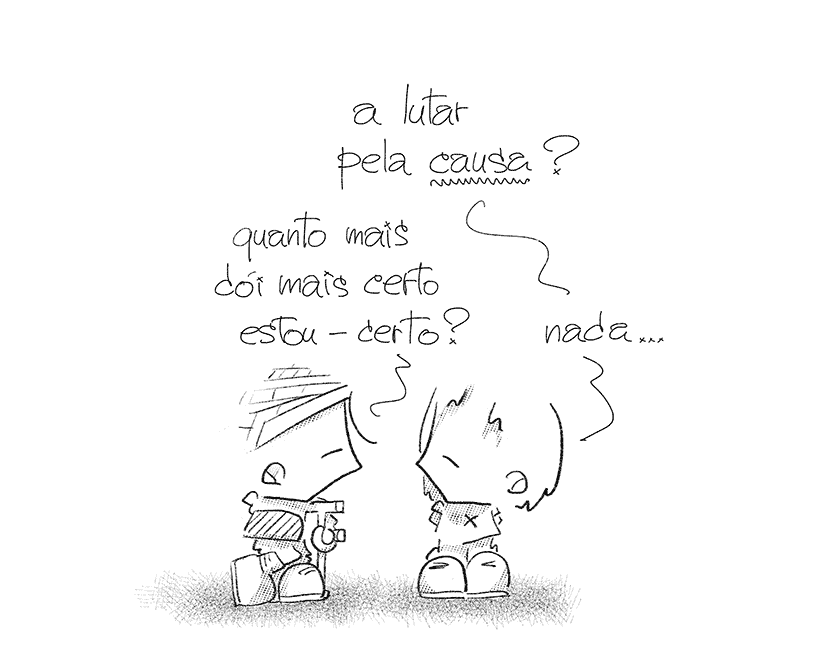 a lutar
pela causa?
quanto mais
dói mais certo
estou - certo?
nada...